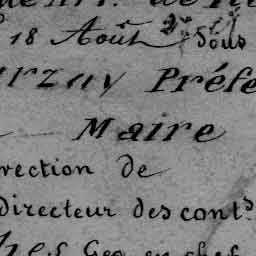 18 Août Sous
rzay Préfe
Maire
rection de
directeur des cont.s
en chef